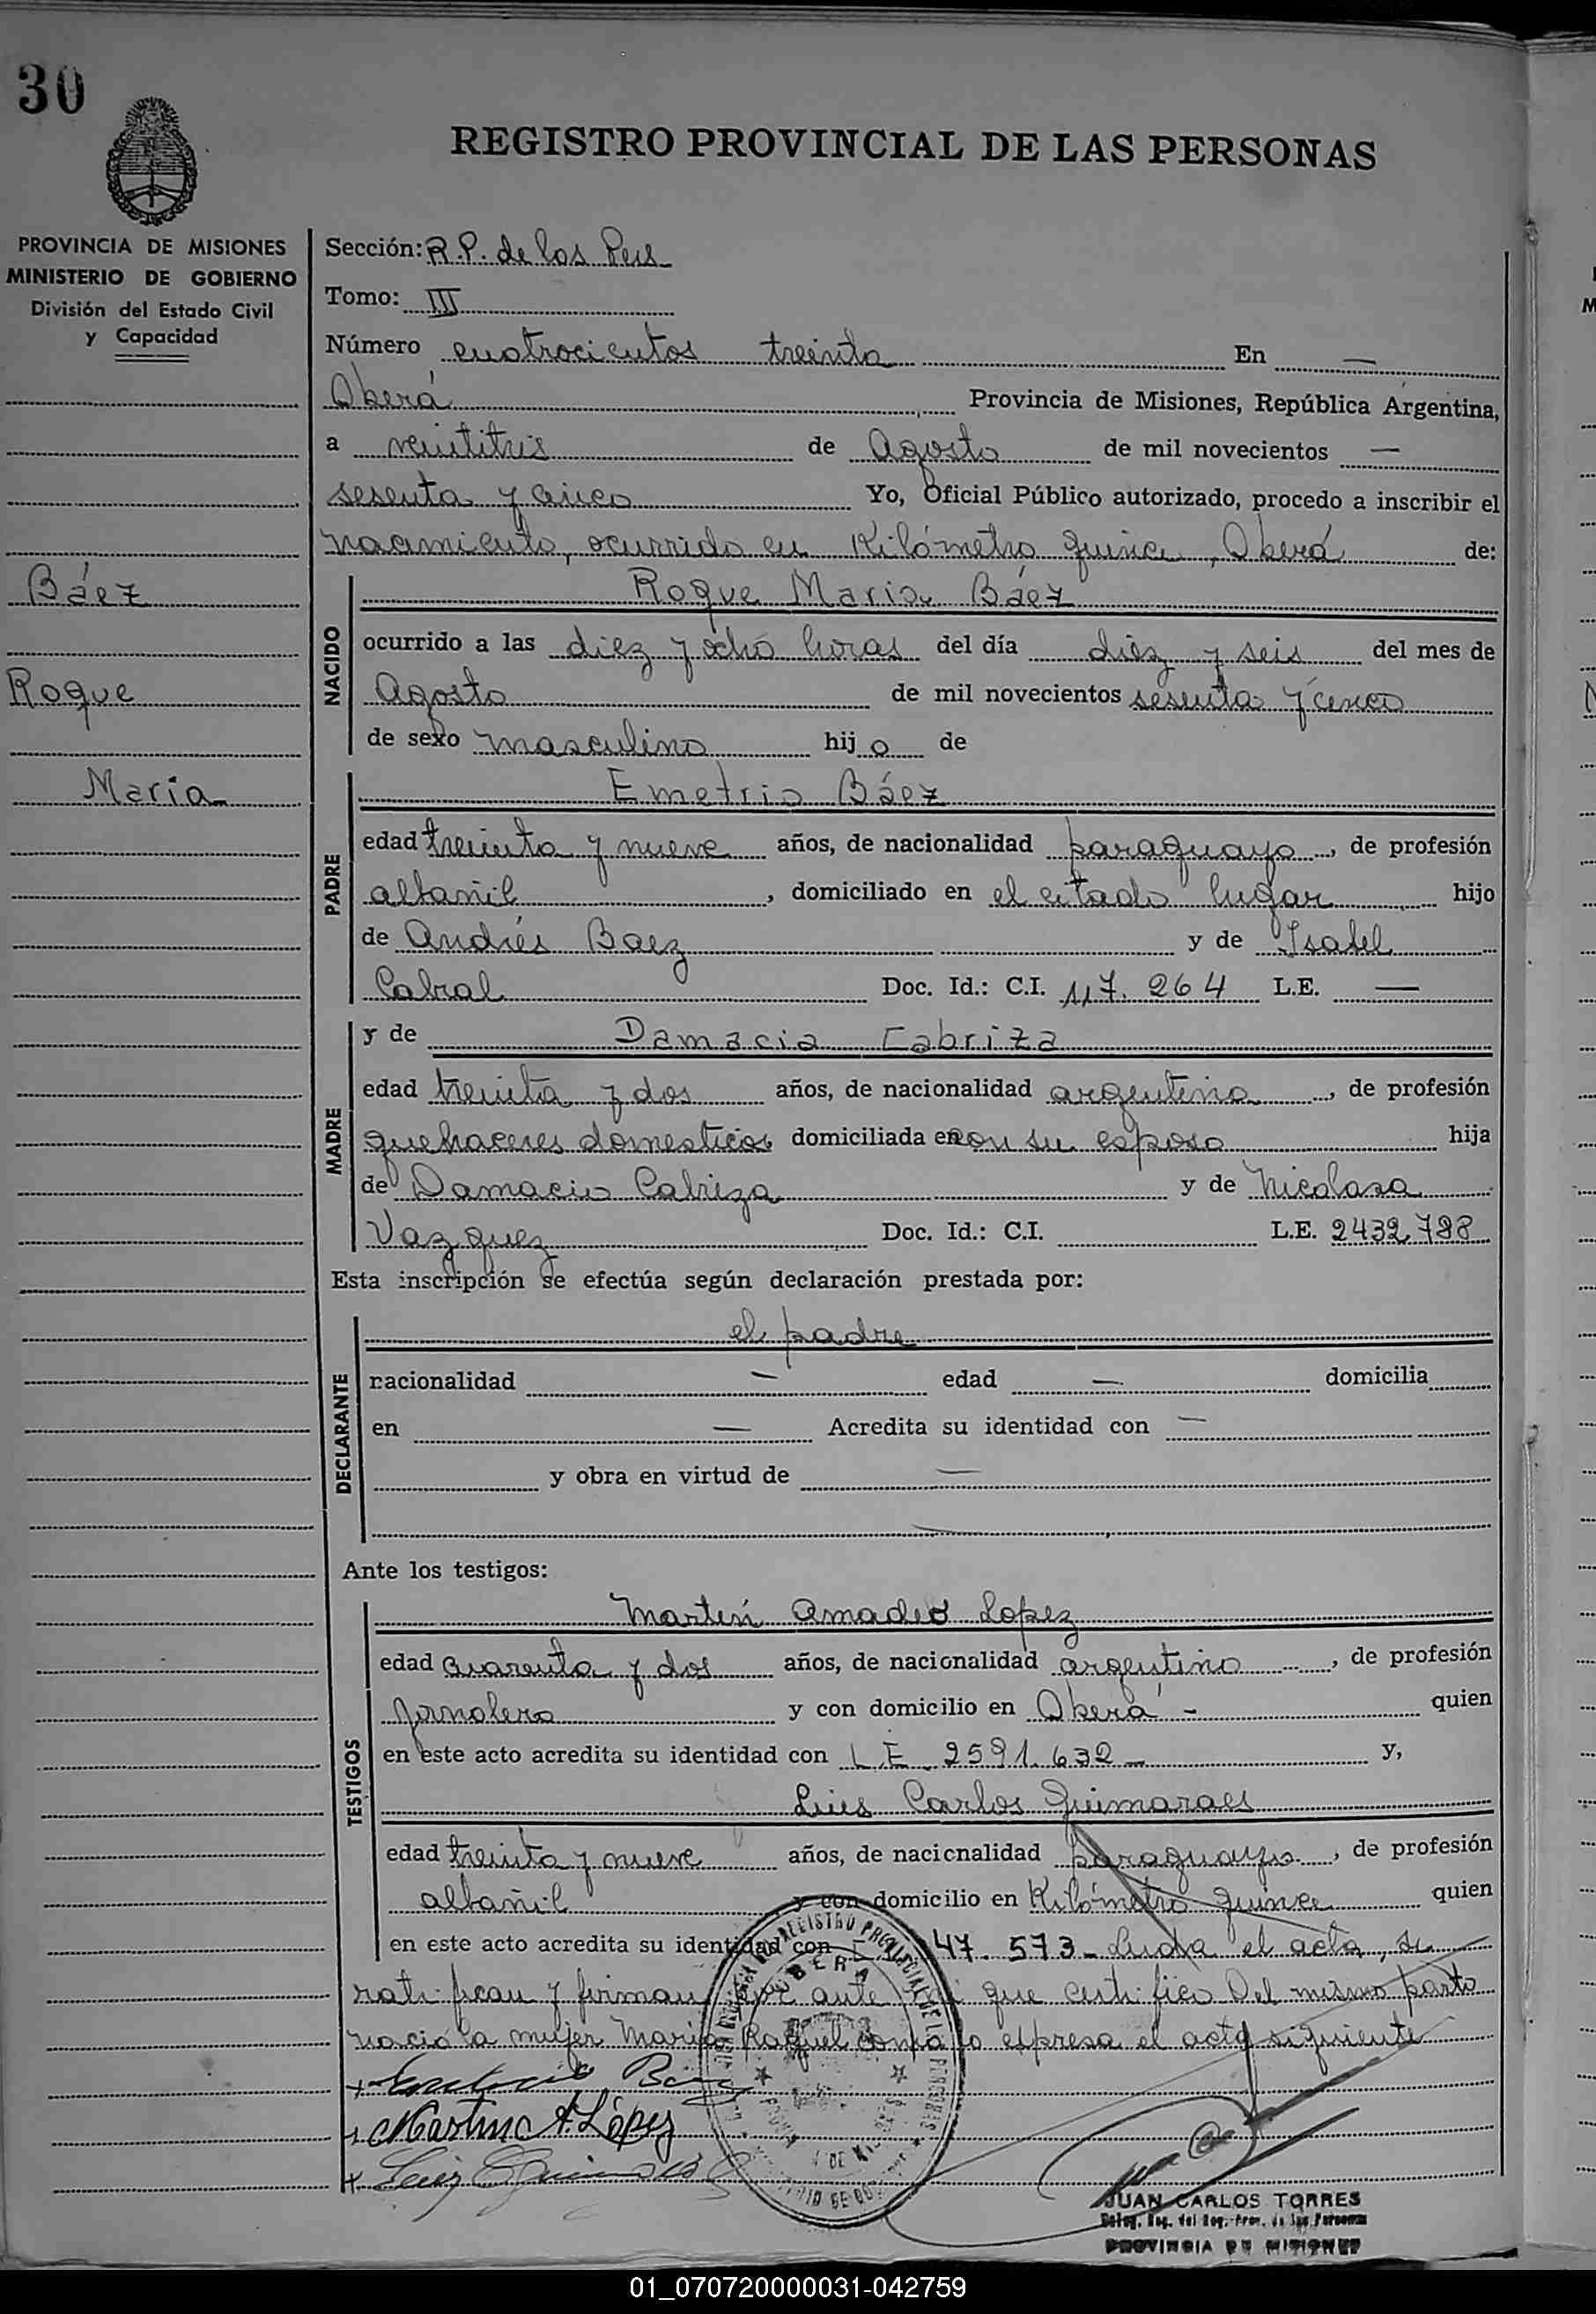 30
REGISTRO PROVINCIAL DE LAS PERSONAS
PROVINCIA DE MISIONES
MINISTERIO DE GOBIERNO
División del Estado Civil
y Capacidad
Báez
Roque
María
Sección: R.P. de las Pers
Tomo: III
Número cuatrocientos treinta En —
Oberá Provincia de Misiones, República Argentina,
a veintitres de Agosto de mil novecientos —
sesenta y cinco Yo, Oficial Público autorizado, procedo a inscribir el
nacimiento, ocurrido en Kilómetro quince, Oberá de:
NACIDO
Roque Maria Báez
ocurrido a las diez y ocho horas del día diez y seis del mes de
Agosto de mil novecientos sesenta y cinco
de sexo masculino hij o de
PADRE
Emetrio Báez
edad treinta y nueve años, de nacionalidad paraguayo, de profesión
albañil, domiciliado en el citado lugar hijo
de Andrés Baez y de Isabel
Cabral Doc. Id.: C.I. 117.264 L.E. —
MADRE
y de Damacia Cabriza
edad treinta y dos años, de nacionalidad argentina, de profesión
quehaceres domesticos domiciliada en con su esposo hija
de Damacio Cabriza y de Nicolasa
Vazquez Doc. Id.: C.I. L.E. 2432.788
Esta inscripción se efectúa según declaración prestada por:
DECLARANTE
el padre
nacionalidad — edad — domicilia
en — Acredita su identidad con —
y obra en virtud de —
Ante los testigos:
TESTIGOS
Martín Amadeo Lopez
edad cuarenta y dos años, de nacionalidad argentino, de profesión
jornalero y con domicilio en Oberá - quien
en este acto acredita su identidad con L.E. 2591.632 — y,
Luis Carlos Guimaraes
edad treinta y nueve años, de nacionalidad paraguayo, de profesión
albañil y con domicilio en Kilómetro quince quien
en este acto acredita su identidad con 47.573 - Leida el acta, se
ratifican y firman por ante mi que certifico Del mismo parto
nació la mujer María Raquel como lo espresa el acta siguiente
Martino A. López
OBERA
JUAN CARLOS TORRES
PROVINCIA DE MISIONES
01_070720000031-042759